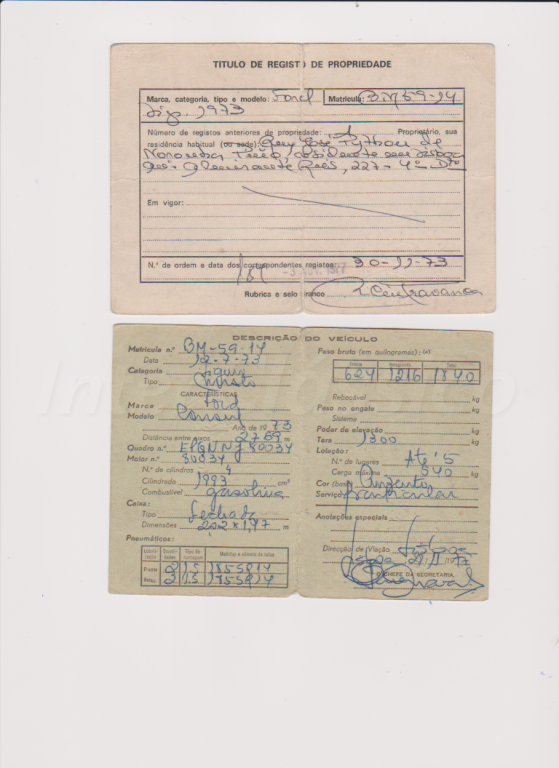 TITULO DE REGISTO DE PROPRIEDADE
Marca, categoria, tipo e modelo: Ford
Matricula: BM-59-14
Lig. 1973
Número de registos anteriores de propriedade: 1 Proprietário, sua
residência habitual (ou sede): Ruy José
Noronha residente em Lisboa
Reis, 227-4º Dto
Em vigor:
N.º de ordem e data dos correspondentes registos: 30-11-73
Rubrica e selo branco
DESCRIÇÃO DO VEÍCULO
Matrícula n.º BM-59-14
Data 12-7-73
Categoria Ligeiro
Tipo Misto
CARACTERÍSTICAS
Marca Ford
Modelo Consul
Ano de 1973
Distância entre eixos 2769 m
Quadro n.º 80034
Motor n.º 80034
N.º de cilindros 4
Cilindrada 1993 cm³
Combustível gasolina
Caixa:
Tipo fechada
Dimensões 2,02 x 1,47 m
Pneumáticos:
Medidas e número de telas
Frente 2 S 175SR14
Retag. 2 S 175SR14
Peso bruto (em quilogramas): (a)
624 1216 1840
Rebocável kg
Peso no engate kg
Sistema
Poder de elevação kg
Tara 1300 kg
Lotação:
N.º de lugares Até 5
Carga máxima 540 kg
Cor (base) Cinzento
Serviço particular
Anotações especiais
Direcção de Viação Lisboa
Lisboa 77
O CHEFE DA SECRETARIA,